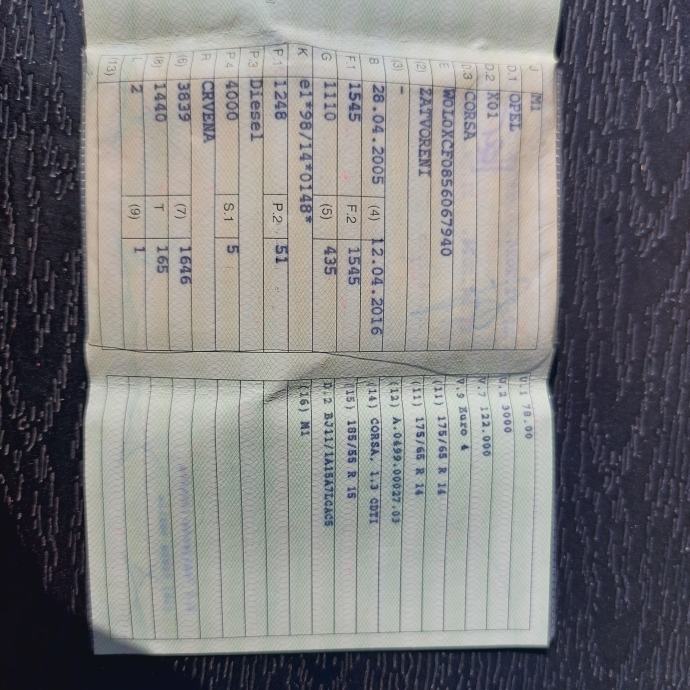 J M1
D.1 OPEL
D.2 X01
D.3 CORSA
E W0L0XCF0856067940
(2) ZATVORENI
(3) -
B 28.04.2005 (4) 12.04.2016
F.1 1545 F.2 1545
G 1110 (5) 435
K e1*98/14*0148*
P.1 1248 P.2 51
P.3 Diesel
P.4 4000 S.1 5
R CRVENA
(6) 3839 (7) 1646
(8) 1440 T 165
L 2 (9) 1
(13)
V.1 78.00
U.2 3000
V.7 122.000
V.9 Euro 4
(11) 175/65 R 14
(11) 175/65 R 14
(12) A.0499.00027.03
(14) CORSA, 1.3 CDTI
(15) 185/55 R 15
D.2 BJ11/1A15A7LCAC5
(16) M1